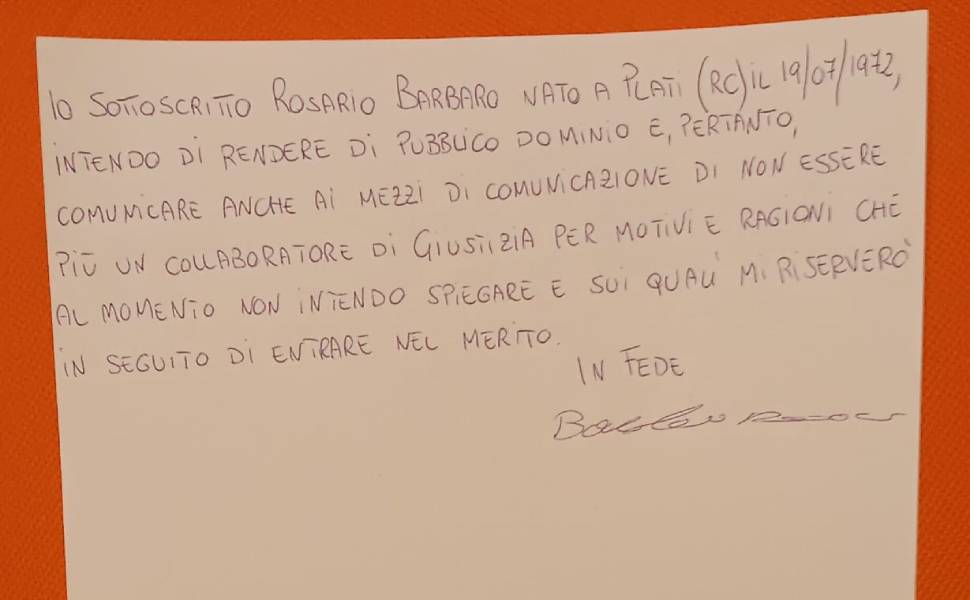 IO SOTTOSCRITTO ROSARIO BARBARO NATO A PLATÌ (RC) IL 19/07/1972,
INTENDO DI RENDERE DI PUBBLICO DOMINIO E, PERTANTO,
COMUNICARE ANCHE AI MEZZI DI COMUNICAZIONE DI NON ESSERE
PIÙ UN COLLABORATORE DI GIUSTIZIA PER MOTIVI E RAGIONI CHE
AL MOMENTO NON INTENDO SPIEGARE E SUI QUALI MI RISERVERÒ
IN SEGUITO DI ENTRARE NEL MERITO.
IN FEDE
Barbaro Rosario